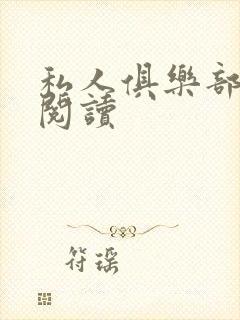 私人俱樂部
閱讀
符瑶